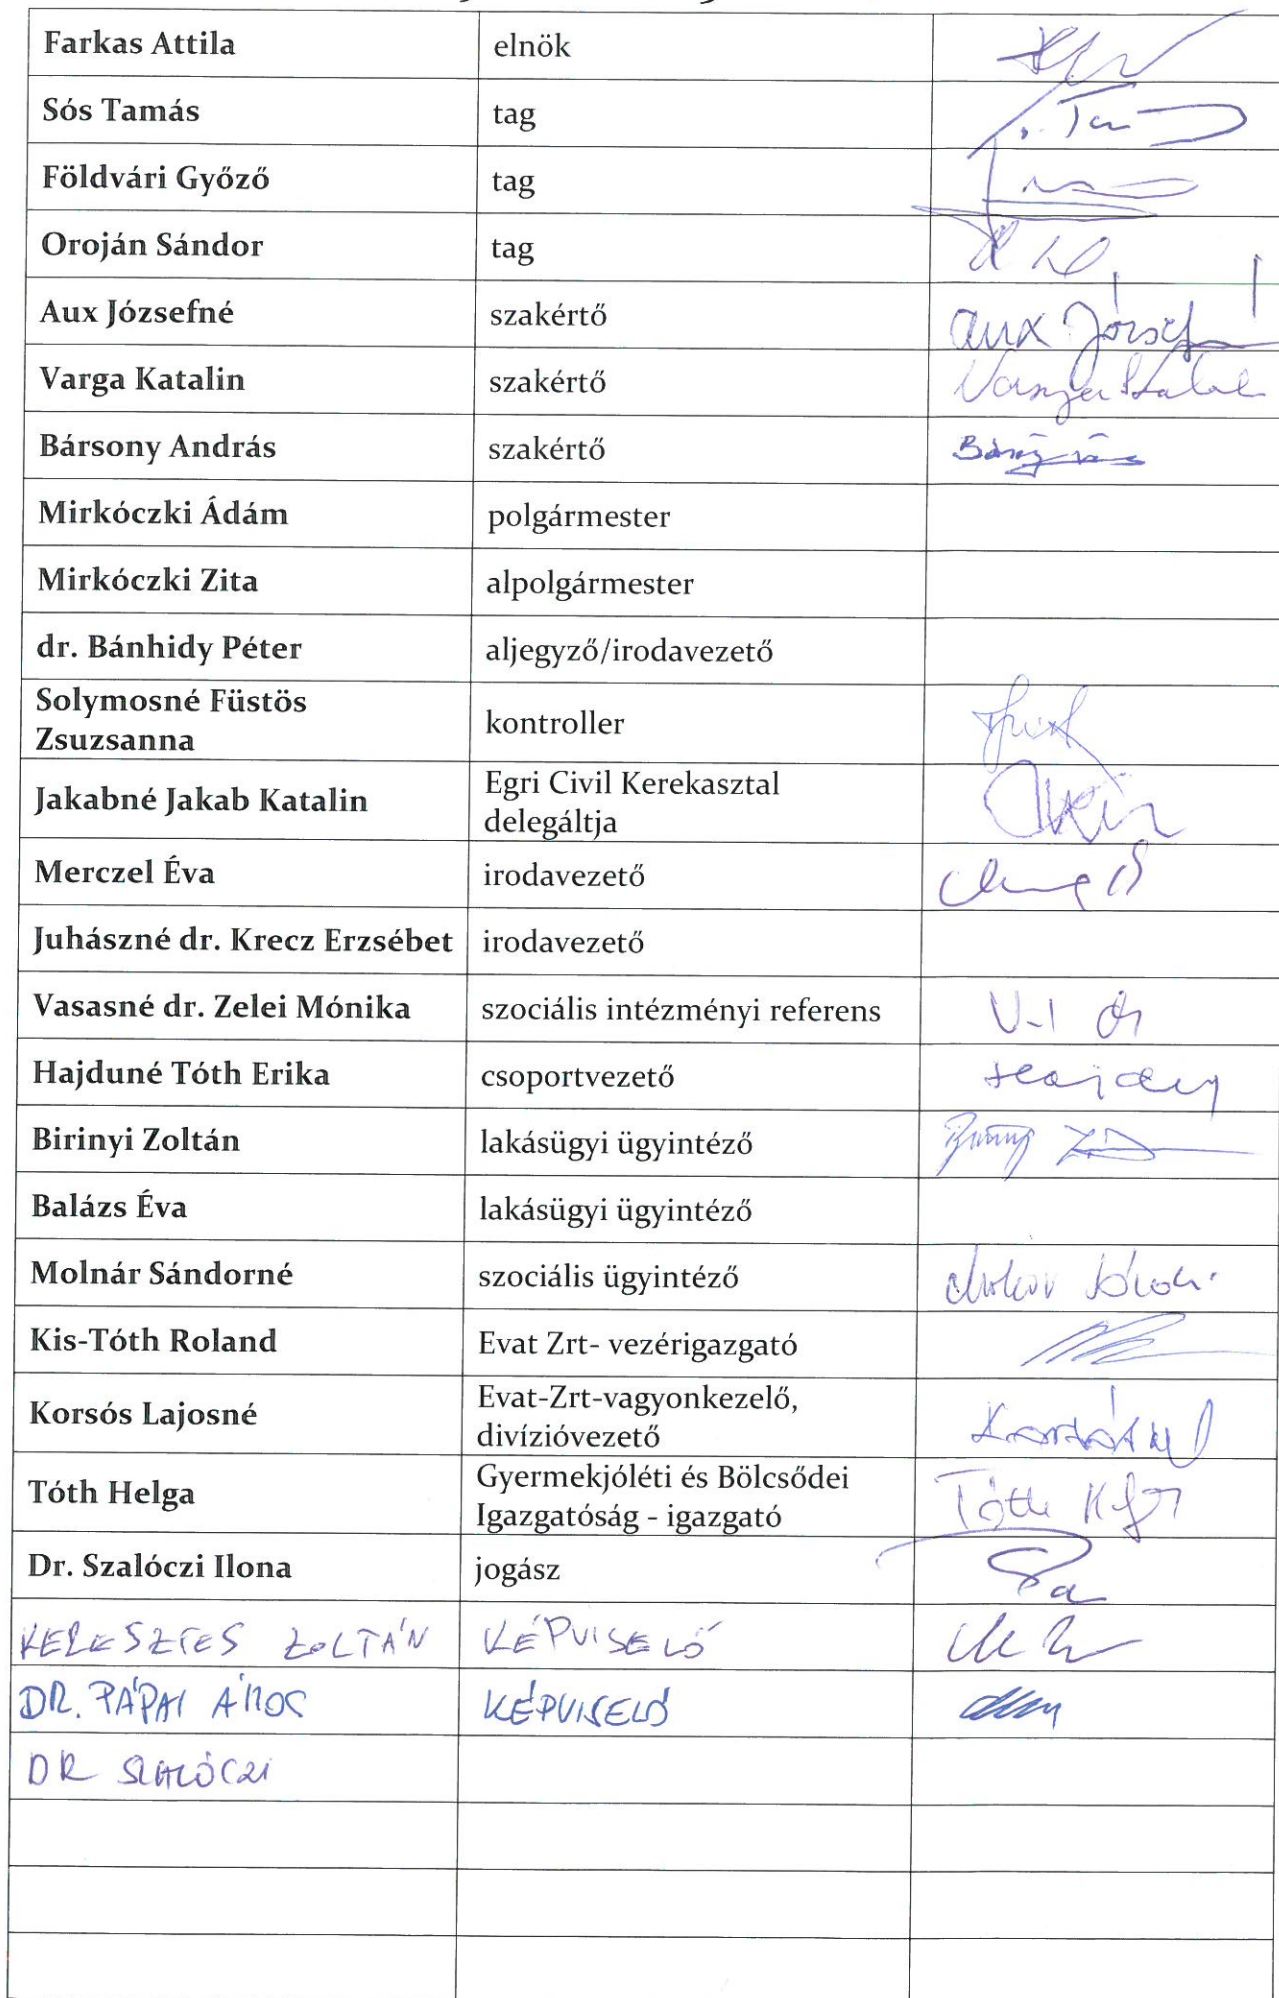 Farkas Attila elnök
Sós Tamás tag
Földvári Győző tag
Oroján Sándor tag
Aux Józsefné szakértő Aux József
Varga Katalin szakértő Varga
Bársony András szakértő
Mirkóczki Ádám polgármester
Mirkóczki Zita alpolgármester
dr. Bánhidy Péter aljegyző/irodavezető
Solymosné Füstös
Zsuzsanna
kontroller
Jakabné Jakab Katalin
Egri Civil Kerekasztal
delegáltja
Merczel Éva irodavezető
Juhászné dr. Krecz Erzsébet irodavezető
Vasasné dr. Zelei Mónika szociális intézményi referens
Hajduné Tóth Erika csoportvezető
Birinyi Zoltán lakásügyi ügyintéző
Balázs Éva lakásügyi ügyintéző
Molnár Sándorné szociális ügyintéző
Kis-Tóth Roland Evat Zrt- vezérigazgató
Korsós Lajosné
Evat-Zrt-vagyonkezelő,
divízióvezető
Tóth Helga
Gyermekjóléti és Bölcsődei
Igazgatóság - igazgató
Tóth
Dr. Szalóczi Ilona jogász
KERESZTES ZOLTÁN KÉPVISELŐ
DR. PÁPAI ÁKOS KÉPVISELŐ
DR SZALÓCZI